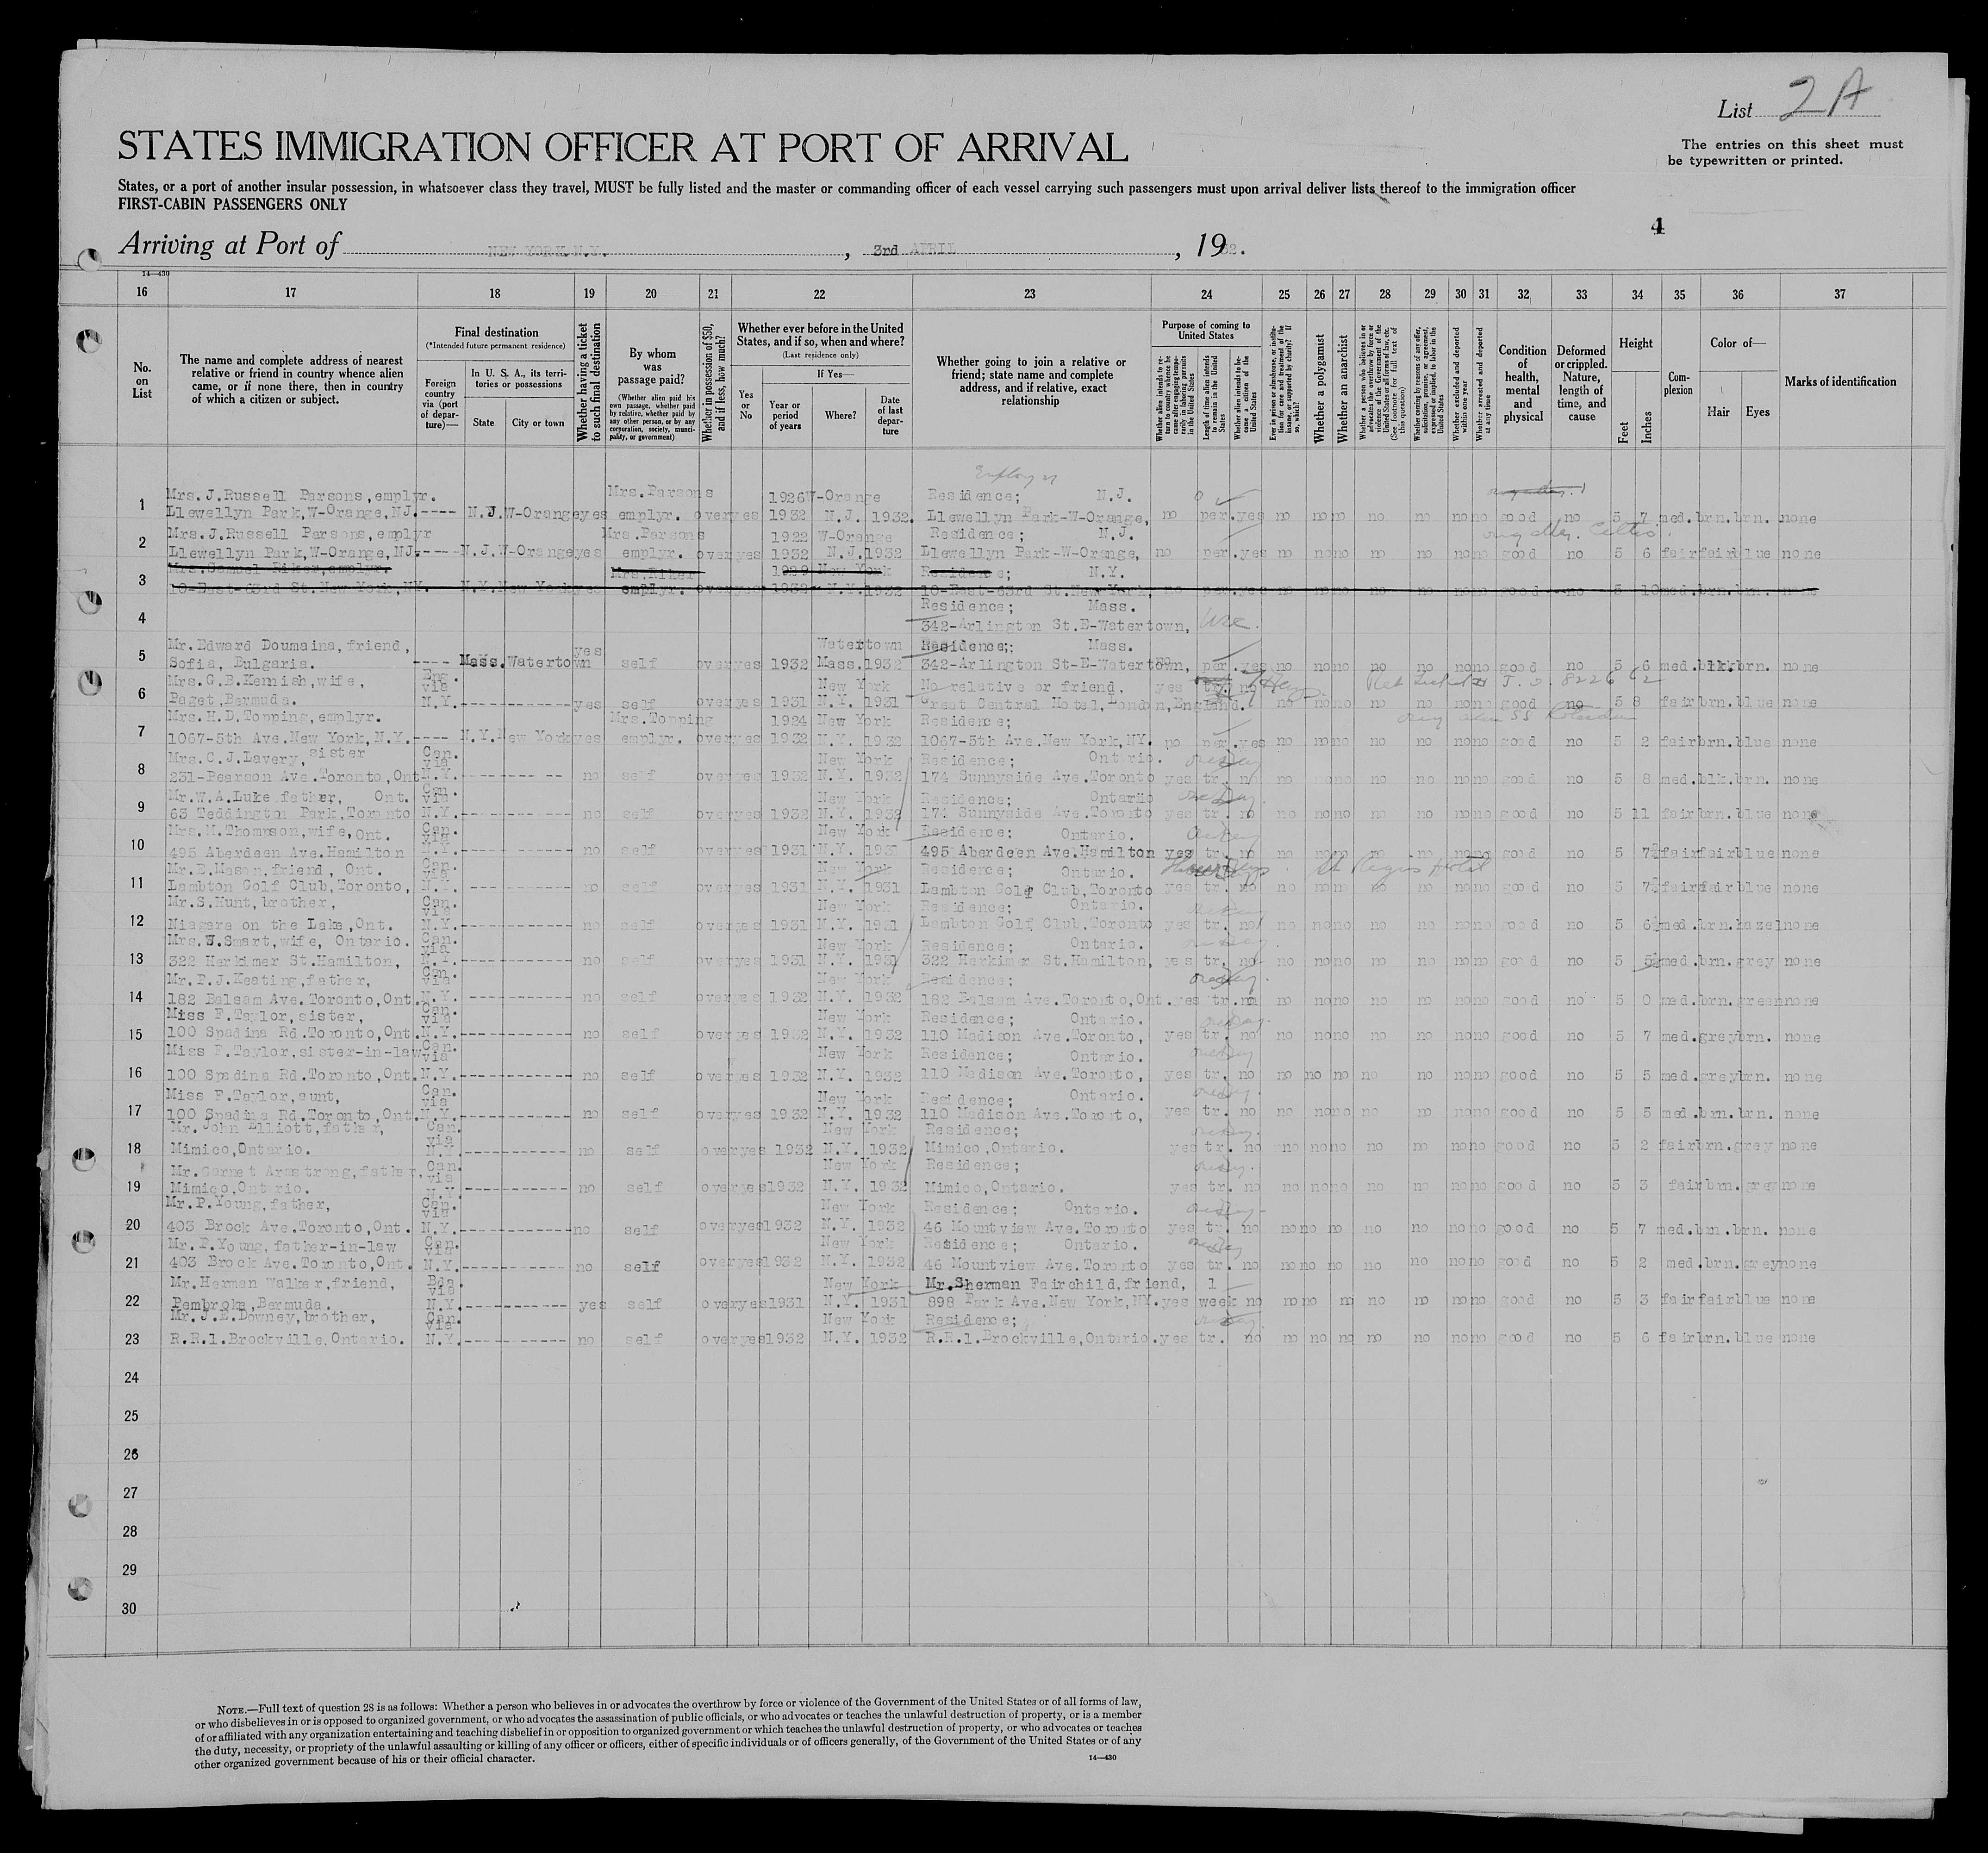 List 2 A
The entries on this sheet must
be typewritten or printed.
STATES IMMIGRATION OFFICER AT PORT OF ARRIVAL
States, or a port of another insular possession, in whatsoever class they travel, MUST be fully listed and the master or commanding officer of each vessel carrying such passengers must upon arrival deliver lists thereof to the immigration officer
FIRST-CABIN PASSENGERS ONLY
4
Arriving at Port of NEW YORK.N.Y. , 3rd APRIL , 1932.
14—430
16 17 18 19 20 21 22 23 24 25 26 27 28 29 30 31 32 33 34 35 36 37
No. on List
The name and complete address of nearest relative or friend in country whence alien came, or if none there, then in country of which a citizen or subject.
Final destination
(*Intended future permanent residence)
Foreign country via (port of departure)—
In U. S. A., its territories or possessions
State
City or town
Whether having a ticket to such final destination
By whom was passage paid?
(Whether alien paid his own passage, whether paid by relative, whether paid by any other person, or by any corporation, society, municipality, or government)
Whether in possession of $50, and if less, how much?
Whether ever before in the United States, and if so, when and where?
(Last residence only)
Yes or No
If Yes—
Year or period of years
Where?
Date of last departure
Whether going to join a relative or friend; state name and complete address, and if relative, exact relationship
Purpose of coming to United States
Whether alien intends to return to country whence he came after engaging temporarily in laboring pursuits in the United States
Length of time alien intends to remain in the United States
Whether alien intends to become a citizen of the United States
Ever in prison or almshouse, or institution for care and treatment of the insane, or supported by charity? If so, which?
Whether a polygamist
Whether an anarchist
Whether a person who believes in or advocates the overthrow by force or violence of the Government of the United States or all forms of law, etc. (See footnote for full text of this question)
Whether coming by reasons of any offer, solicitation, promise, or agreement, expressed or implied, to labor in the United States
Whether excluded and deported within one year
Whether arrested and deported at any time
Condition of health, mental and physical
Deformed or crippled. Nature, length of time, and cause
Height
Feet
Inches
Complexion
Color of—
Hair
Eyes
Marks of identification
Mrs.J.Russell Parsons,emplyr. Mrs.Parsons 1926 W-Orange Residence; N.J.
1 Llewellyn Park,W-Orange,NJ.---- N.J.W-Orange yes emplyr. over yes 1932 N.J. 1932. Llewellyn Park-W-Orange, no per.yes no no no no no no no good no 5 7 med.brn.brn. none
Mrs.J.Russell Parsons,emplyr Mrs.Parsons 1922 W-Orange Residence; N.J.
2 Llewellyn Park,W-Orange,NJ.---- N.J.W-Orange yes emplyr. over yes 1932 N.J.1932 Llewellyn Park-W-Orange, no per.yes no no no no no no no good no 5 6 fair fair blue none
Mrs.Samuel Riker,emplyr. Mrs.Riker 1929 New York Residence; N.Y.
3 10-East-63rd St.New York,NY. N.Y.New York yes emplyr. over yes 1932 N.Y.1932 10-East-63rd St.New York, no per.yes no no no no no no no good no 5 10 med.brn.brn. none
Residence; Mass.
4 342-Arlington St.E-Watertown,
Mr.Edward Doumaina,friend, yes Watertown Residence; Mass.
5 Sofia, Bulgaria. ---- Mass.Watertown self over yes 1932 Mass.1932 342-Arlington St-E-Watertown, per.yes no no no no no no no good no 5 6 med.blk.brn. none
Mrs.G.B.Kemish,wife, Eng. via New York No relative or friend, yes tr. no
6 Paget,Bermuda. N.Y.------------yes self over yes 1931 N.Y. 1931 Great Central Hotel,London,England. no no no no no no no good no 5 8 fair brn.blue none
Mrs.H.D.Topping,emplyr. Mrs.Topping 1924 New York Residence;
7 1067-5th Ave.New York,N.Y.---- N.Y.New York yes emplyr. over yes 1932 N.Y. 1932 1067-5th Ave.New York,NY. no per.yes no no no no no no no good no 5 2 fair brn.blue none
Mrs.C.J.Lavery,sister Can. via New York Residence; Ontario.
8 231-Pearson Ave.Toronto,Ont N.Y.------------ no self over yes 1932 N.Y. 1932 174 Sunnyside Ave.Toronto yes tr. no no no no no no no no good no 5 8 med.blk.brn. none
Mr.W.A.Luke father, Ont. Can. via New York Residence; Ontario
9 63 Teddington Park,Toronto N.Y.------------ no self over yes 1932 N.Y. 1932 174 Sunnyside Ave.Toronto yes tr. no no no no no no no no good no 5 11 fair brn.blue none
Mrs.M.Thompson,wife,Ont. Can. via New York Residence; Ontario. One Day
10 495 Aberdeen Ave.Hamilton N.Y.------------ no self over yes 1931 N.Y. 1931 495 Aberdeen Ave.Hamilton yes tr. no no no no no no no no good no 5 7½ fair fair blue none
Mr.E.Mason,friend, Ont. Can. via New York Residence; Ontario. St Regis Hotel
11 Lambton Golf Club,Toronto, N.Y.------------ no self over yes 1931 N.Y. 1931 Lambton Golf Club,Toronto yes tr. no no no no no no no no good no 5 7½ fair fair blue none
Mr.S.Hunt,brother, Can. via New York Residence; Ontario. One Day
12 Niagara on the Lake,Ont. N.Y.------------ no self over yes 1931 N.Y. 1931 Lambton Golf Club,Toronto yes tr. no no no no no no no no good no 5 6½ med.brn.hazel none
Mrs.W.Smart,wife, Ontario. Can. via New York Residence; Ontario. One Day
13 322 Herkimer St.Hamilton, N.Y.------------ no self over yes 1931 N.Y. 1931 322 Herkimer St.Hamilton, yes tr. no no no no no no no no good no 5 5½ med.brn.grey none
Mr.P.J.Keating,father, Can. via New York Residence; One Day
14 182 Balsam Ave.Toronto,Ont. N.Y.------------ no self over yes 1932 N.Y. 1932 182 Balsam Ave.Toronto,Ont.yes tr.no no no no no no no no good no 5 0 med.brn.green none
Miss F.Taylor,sister, Can. via New York Residence; Ontario. One Day
15 100 Spadina Rd.Toronto,Ont.N.Y.------------ no self over yes 1932 N.Y. 1932 110 Madison Ave.Toronto, yes tr. no no no no no no no no good no 5 7 med.grey brn. none
Miss F.Taylor,sister-in-law Can. via New York Residence; Ontario. One Day
16 100 Spadina Rd.Toronto,Ont.N.Y.------------ no self over yes 1932 N.Y. 1932 110 Madison Ave.Toronto, yes tr. no no no no no no no no good no 5 5 med.grey brn. none
Miss F.Taylor,aunt, Can. via New York Residence; Ontario. One Day
17 100 Spadina Rd.Toronto,Ont.N.Y.------------ no self over yes 1932 N.Y. 1932 110 Madison Ave.Toronto, yes tr. no no no no no no no no good no 5 5 med.brn.brn. none
Mr.John Elliott,father, Can. via New York Residence; One Day.
18 Mimico,Ontario. N.Y.------------ no self over yes 1932 N.Y. 1932 Mimico,Ontario. yes tr. no no no no no no no no good no 5 2 fair brn.grey none
Mr.Garnet Armstrong,father, Can. via New York Residence; One Day.
19 Mimico,Ontario. N.Y.------------ no self over yes 1932 N.Y. 1932 Mimico,Ontario. yes tr. no no no no no no no no good no 5 3 fair brn.grey none
Mr.P.Young,father, Can. via New York Residence; Ontario. One Day
20 403 Brock Ave.Toronto,Ont. N.Y.------------no self over yes 1932 N.Y. 1932 46 Mountview Ave.Toronto yes tr. no no no no no no no no good no 5 7 med.brn.brn. none
Mr.P.Young,father-in-law Can. via New York Residence; Ontario. One Day
21 403 Brock Ave.Toronto,Ont. N.Y.------------ no self over yes 1932 N.Y. 1932 46 Mountview Ave.Toronto yes tr. no no no no no no no no good no 5 2 med.brn.grey none
Mr.Herman Walker,friend, Bda. via New York Mr.Sherman Fairchild,friend, 1
22 Pembroke,Bermuda. N.Y.------------ yes self over yes 1931 N.Y. 1931 898 Park Ave.New York,NY.yes week no no no no no no no no good no 5 3 fair fair blue none
Mr.J.E.Downey,brother, Can. via New York Residence; One Day
23 R.R.1.Brockville,Ontario. N.Y.------------ no self over yes 1932 N.Y. 1932 R.R.1.Brockville,Ontario.yes tr. no no no no no no no no good no 5 6 fair brn.blue none
24
25
26
27
28
29
30
NOTE.—Full text of question 28 is as follows: Whether a person who believes in or advocates the overthrow by force or violence of the Government of the United States or of all forms of law,
or who disbelieves in or is opposed to organized government, or who advocates the assassination of public officials, or who advocates or teaches the unlawful destruction of property, or is a member
of or affiliated with any organization entertaining and teaching disbelief in or opposition to organized government or which teaches the unlawful destruction of property, or who advocates or teaches
the duty, necessity, or propriety of the unlawful assaulting or killing of any officer or officers, either of specific individuals or of officers generally, of the Government of the United States or of any
other organized government because of his or their official character.
14—430